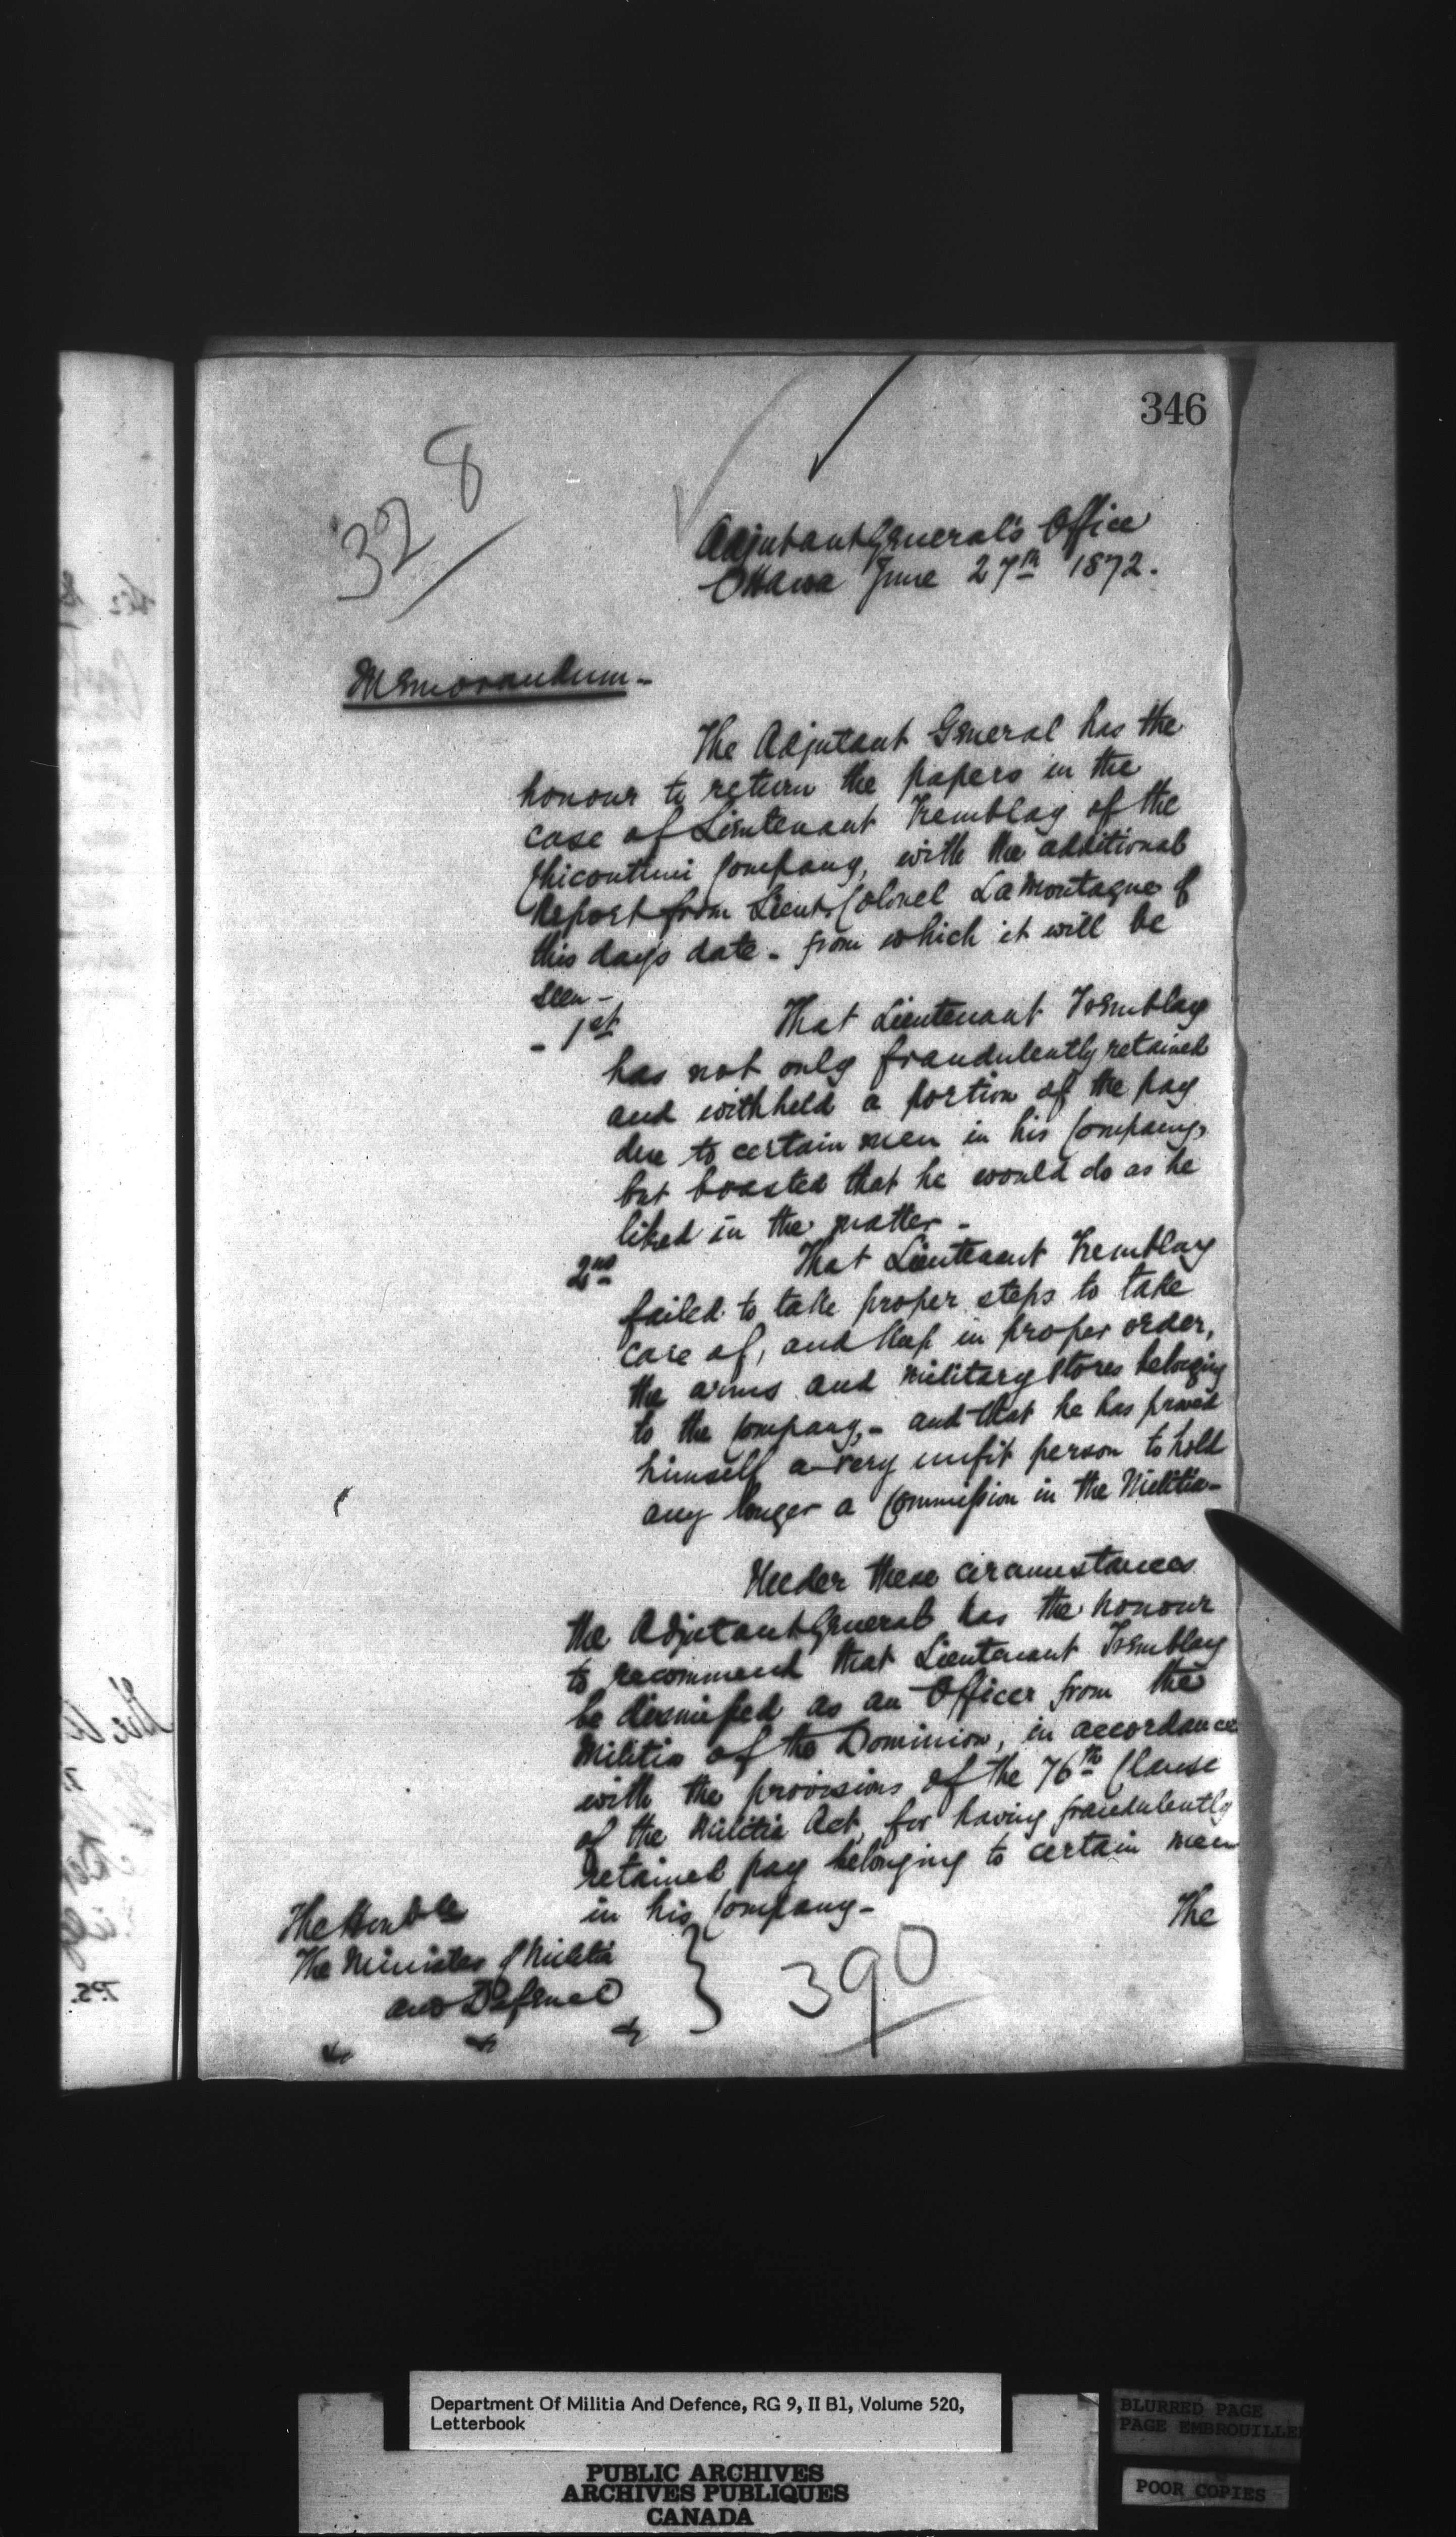 346
328
Adjutant General's Office
Ottawa June 27th 1872.
Memorandum -
The Adjutant General has the
honour to return the papers in the
case of Lieutenant Tremblay of the
Chicoutimi Company, with the additional
Report from Lieut. Colonel LaMontagne of
this day's date - from which it will be
seen -
- 1st That Lieutenant Tremblay
has not only fraudulently retained
and withheld a portion of the pay
due to certain men in his Company,
but boasted that he would do as he
liked in the matter -
2nd That Lieutenant Tremblay
failed to take proper steps to take
care of, and keep in proper order,
the arms and military stores belonging
to the Company, - and that he has proved
himself a very unfit person to hold
any longer a Commission in the Militia -
Under these circumstances
the Adjutant General has the honour
to recommend that Lieutenant Tremblay
be dismissed as an Officer from the
Militia of the Dominion, in accordance
with the provisions of the 76th Clause
of the Militia Act, for having fraudulently
retained pay belonging to certain men
in his Company -
The
The Honble
The Minister of Militia
and Defence
390
Department Of Militia And Defence, RG 9, II B1, Volume 520,
Letterbook
PUBLIC ARCHIVES
ARCHIVES PUBLIQUES
CANADA
BLURRED PAGE
PAGE EMBROUILLE
POOR COPIES